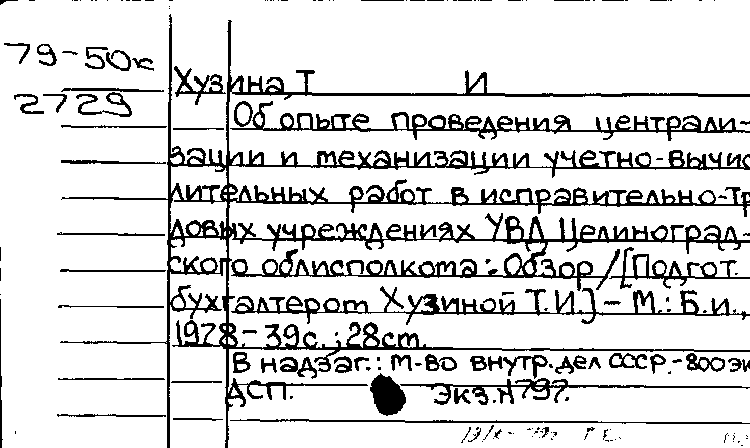 79-50к
2729
Хузина, Т И
Об опыте проведения централи-
зации и механизации учетно-вычис
лительных работ в исправительно-тр
довых учреждениях УВД Целиноград-
ского облисполкома: Обзор / [Подгот.
бухгалтером Хузиной Т.И.] - М.: Б.и.,
1978.- 39с.; 28см.
В надзаг.: М-во внутр. дел СССР.- 800 эк
ДСП. Экз.№797.